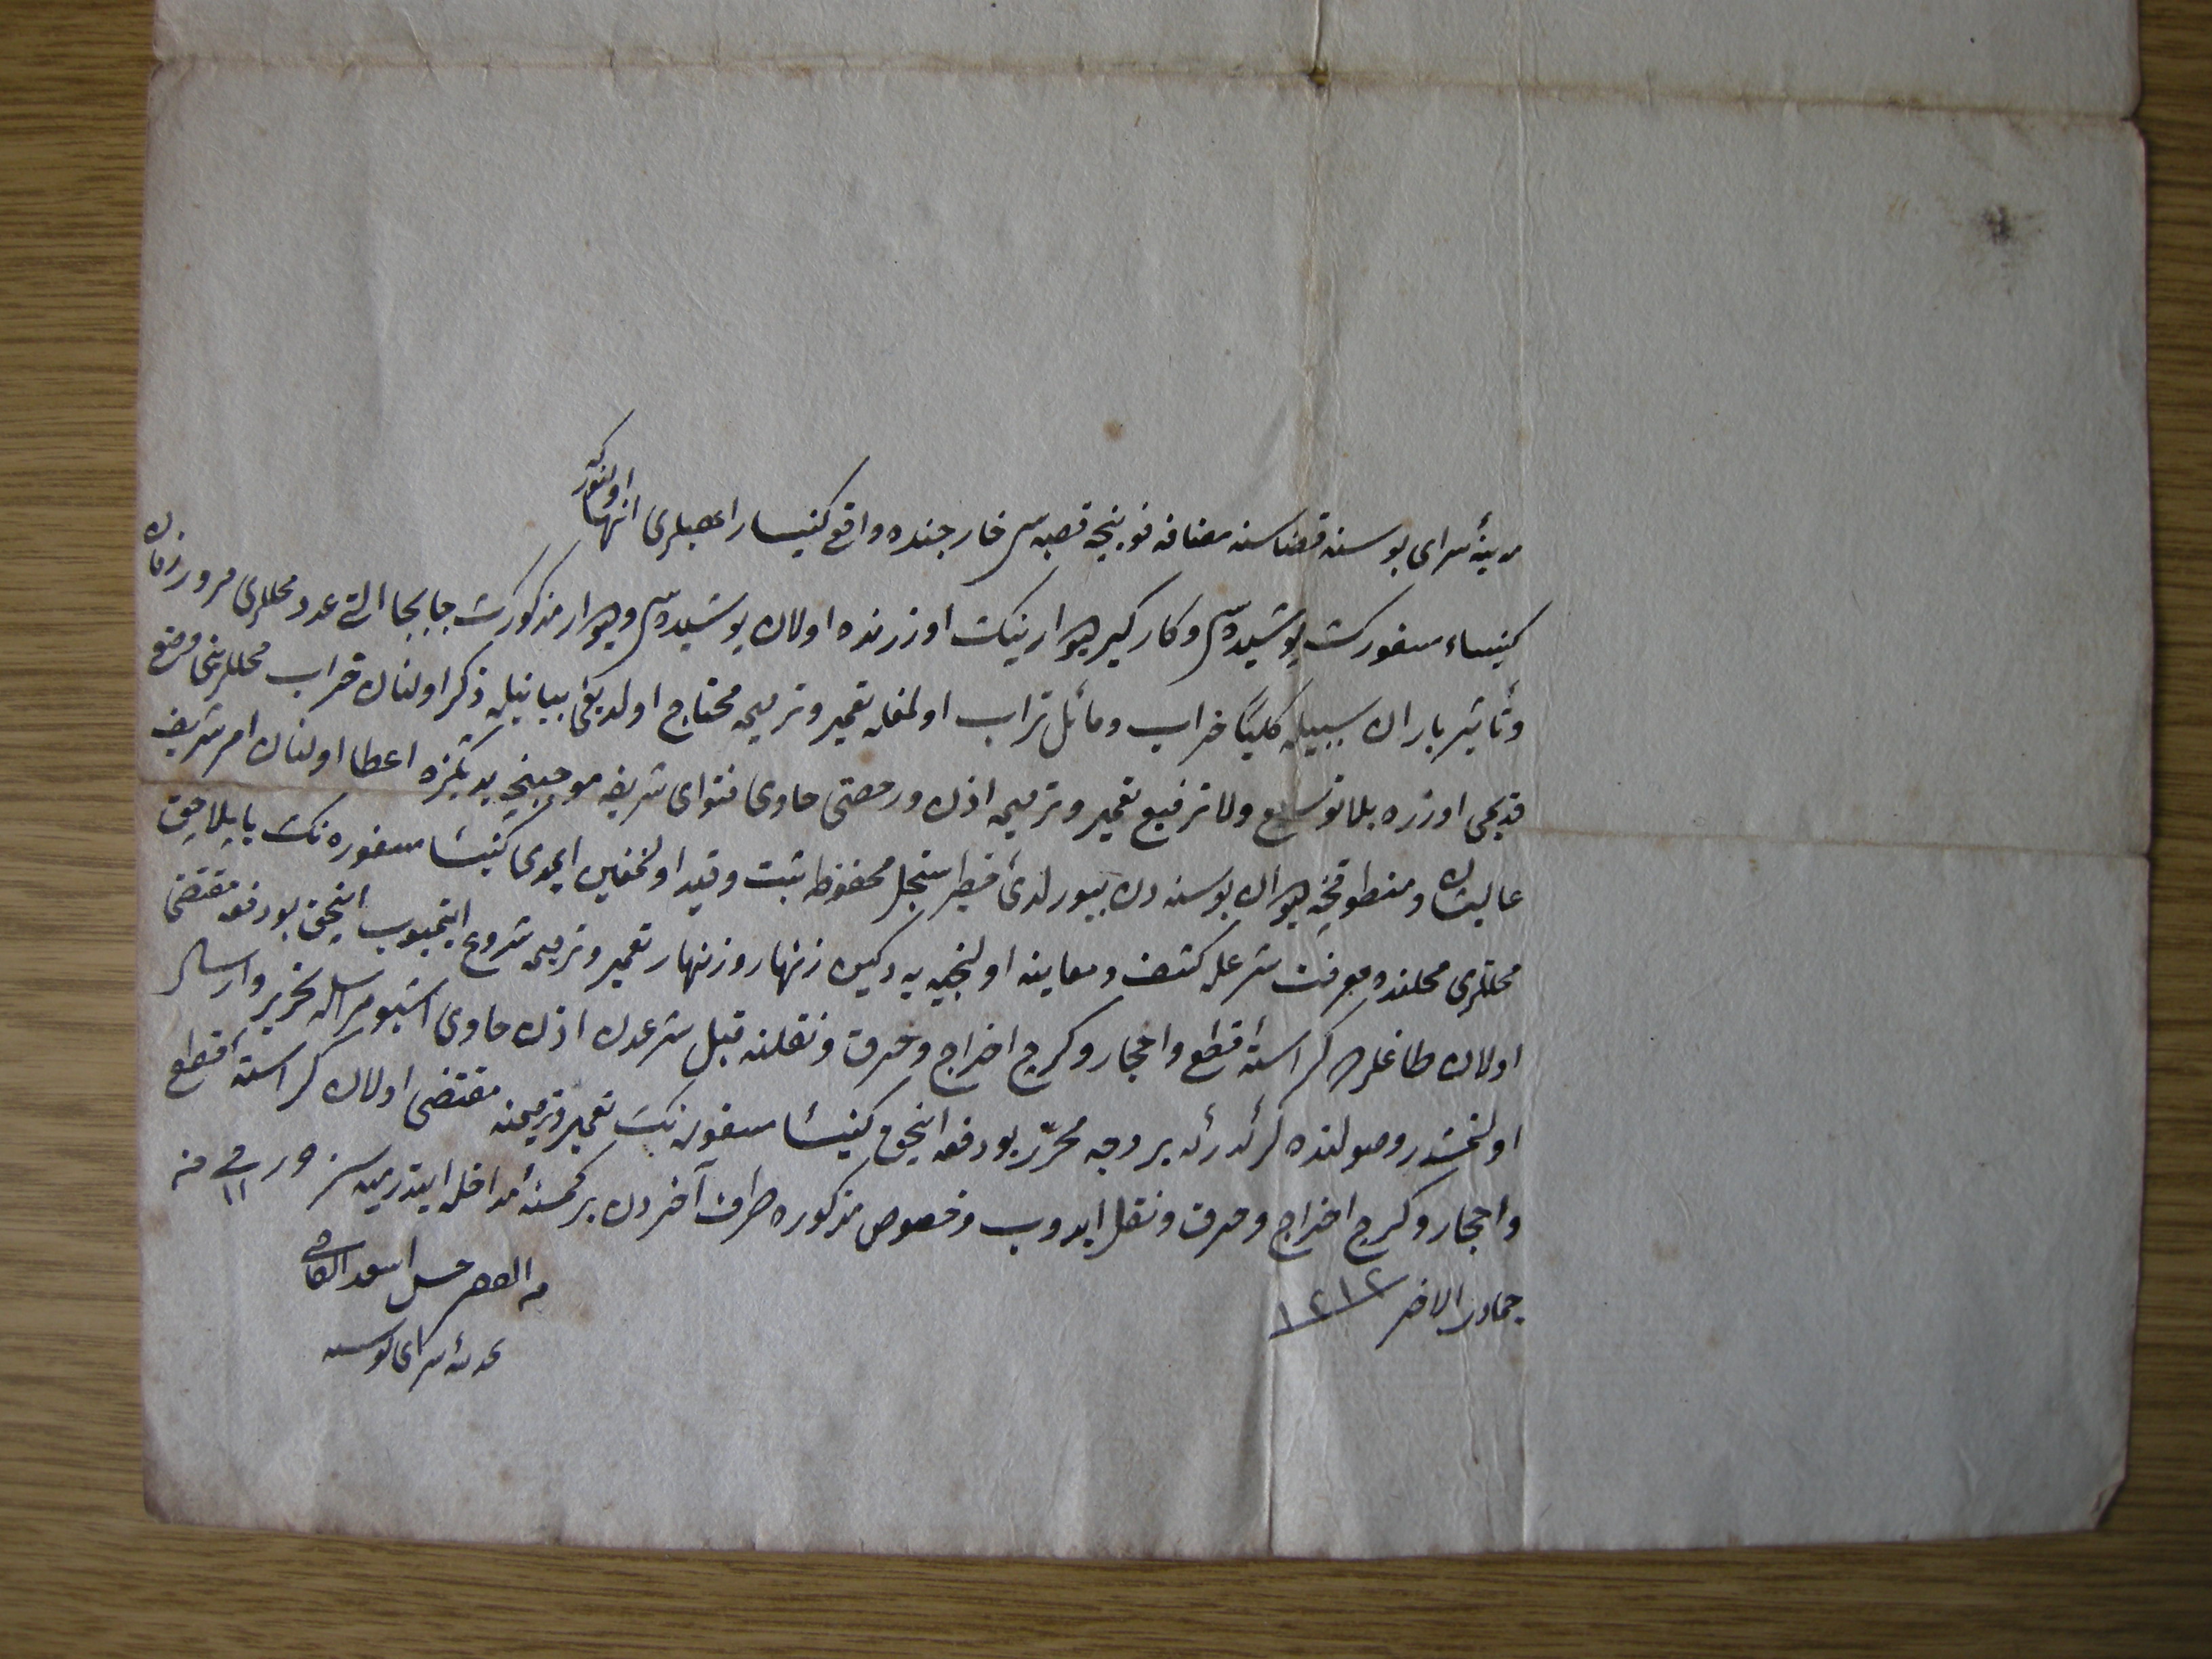 مدینهٔ سرای بوسنه قضاسنه مضافه فوینیچه قصبه سی خارجنده واقع کنیسا راهبلری انها اولنور که
کنیساء مسفورک پوشیده سی و کارکیر دیوارینک اوزرنده اولان پوشیده سی و دیوار مذکورک جابجا التی عدد محللری مرور زمان
و تأثیر باران سببیله کلیّاً خراب و مائل تراب اولمغله تعمیر و ترمیمه محتاج اولدیغی بیانیله ذکر اولنان خراب محللرینی وضع
قدیمی اوزره بلا توسیع ولا ترفیع تعمیر و ترمیمه اذن و رخصتی حاوی فتوای شریفه موجبنجه یدیکزه اعطا اولنان امر شریف
عالیشان و منطوقنجه دیوان بوسنه دن بیورلدی سجل محفوظه ثبت و قید اولنمغین ایمدی کنیسٔا مسفوره نک
محللری محلنده معرفت شرعله کشف و معاینه اولنجیه دکین زنهار و زنهار تعمیر و ترمیمه شروع ایتمیوب ایچون بو دفعه مقتضی
اولان طاغلردن کراسته قطع و احجار و کرج اخراج و حرق و نقلنه قبل شرعدن اذن حاوی اشبو مراسله تحریر و ارسال
اولنمشدر وصولنده کرکدر که بر وجه محرّر بو دفعه ایچون کنیسٔا مسفوره نک تعمیر و ترمیمنه مقتضی اولان کراسته قطع
و احجار و کرج اخراج و حرق و نقل ایدوب و خصوص مذکوره طرف آخردن بر کمسنه مداخله ایتدرمیه سز حرر فی ١١ من
جمادی الاخر ١٢١٢
من الفقیر اسعد القاضی
بمدینهٔ سرای بوسنه